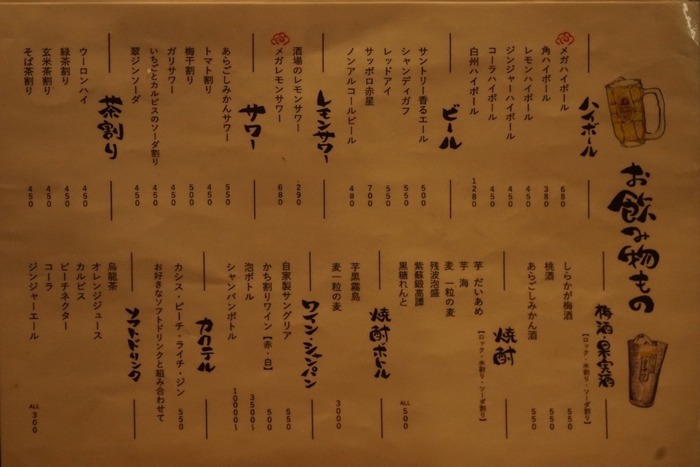 お飲み物もの
ハイボール
メガハイボール 680
角ハイボール 380
レモンハイボール 450
ジンジャーハイボール 450
コーラハイボール 450
白州ハイボール 1280
ビール
サントリー香るエール 500
シャンディガフ 550
レッドアイ 550
サッポロ赤星 700
ノンアルコールビール 480
レモンサワー
酒場のレモンサワー 290
メガレモンサワー 680
サワー
あらごしみかんサワー 550
トマト割り 450
梅干割り 500
ガリサワー 450
いちごとカルピスのソーダ割り 450
翠ジンソーダ 450
茶割り
ウーロンハイ 450
緑茶割り 450
玄米茶割り 450
そば茶割り 450
梅酒・果実酒
【ロック・水割り・ソーダ割り】
しらかが梅酒 550
桃酒 550
あらごしみかん酒 550
焼酎
【ロック・水割り・ソーダ割り】
芋 だいあめ
芋 海
麦 一粒の麦
残波泡盛
紫蘇鍛高譚
黒糖れんと
ALL 500
焼酎ボトル
芋黒霧島
麦一粒の麦
3000
ワイン・シャンパン
自家製サングリア 550
かち割りワイン【赤・白】 500
泡ボトル 3500〜
シャンパンボトル 10000〜
カクテル
カシス・ピーチ・ライチ・ジン 550
お好きなソフトドリンクと組み合わせて
ソフトドリンク
烏龍茶
オレンジジュース
カルピス
ピーチネクター
コーラ
ジンジャーエール
ALL 300